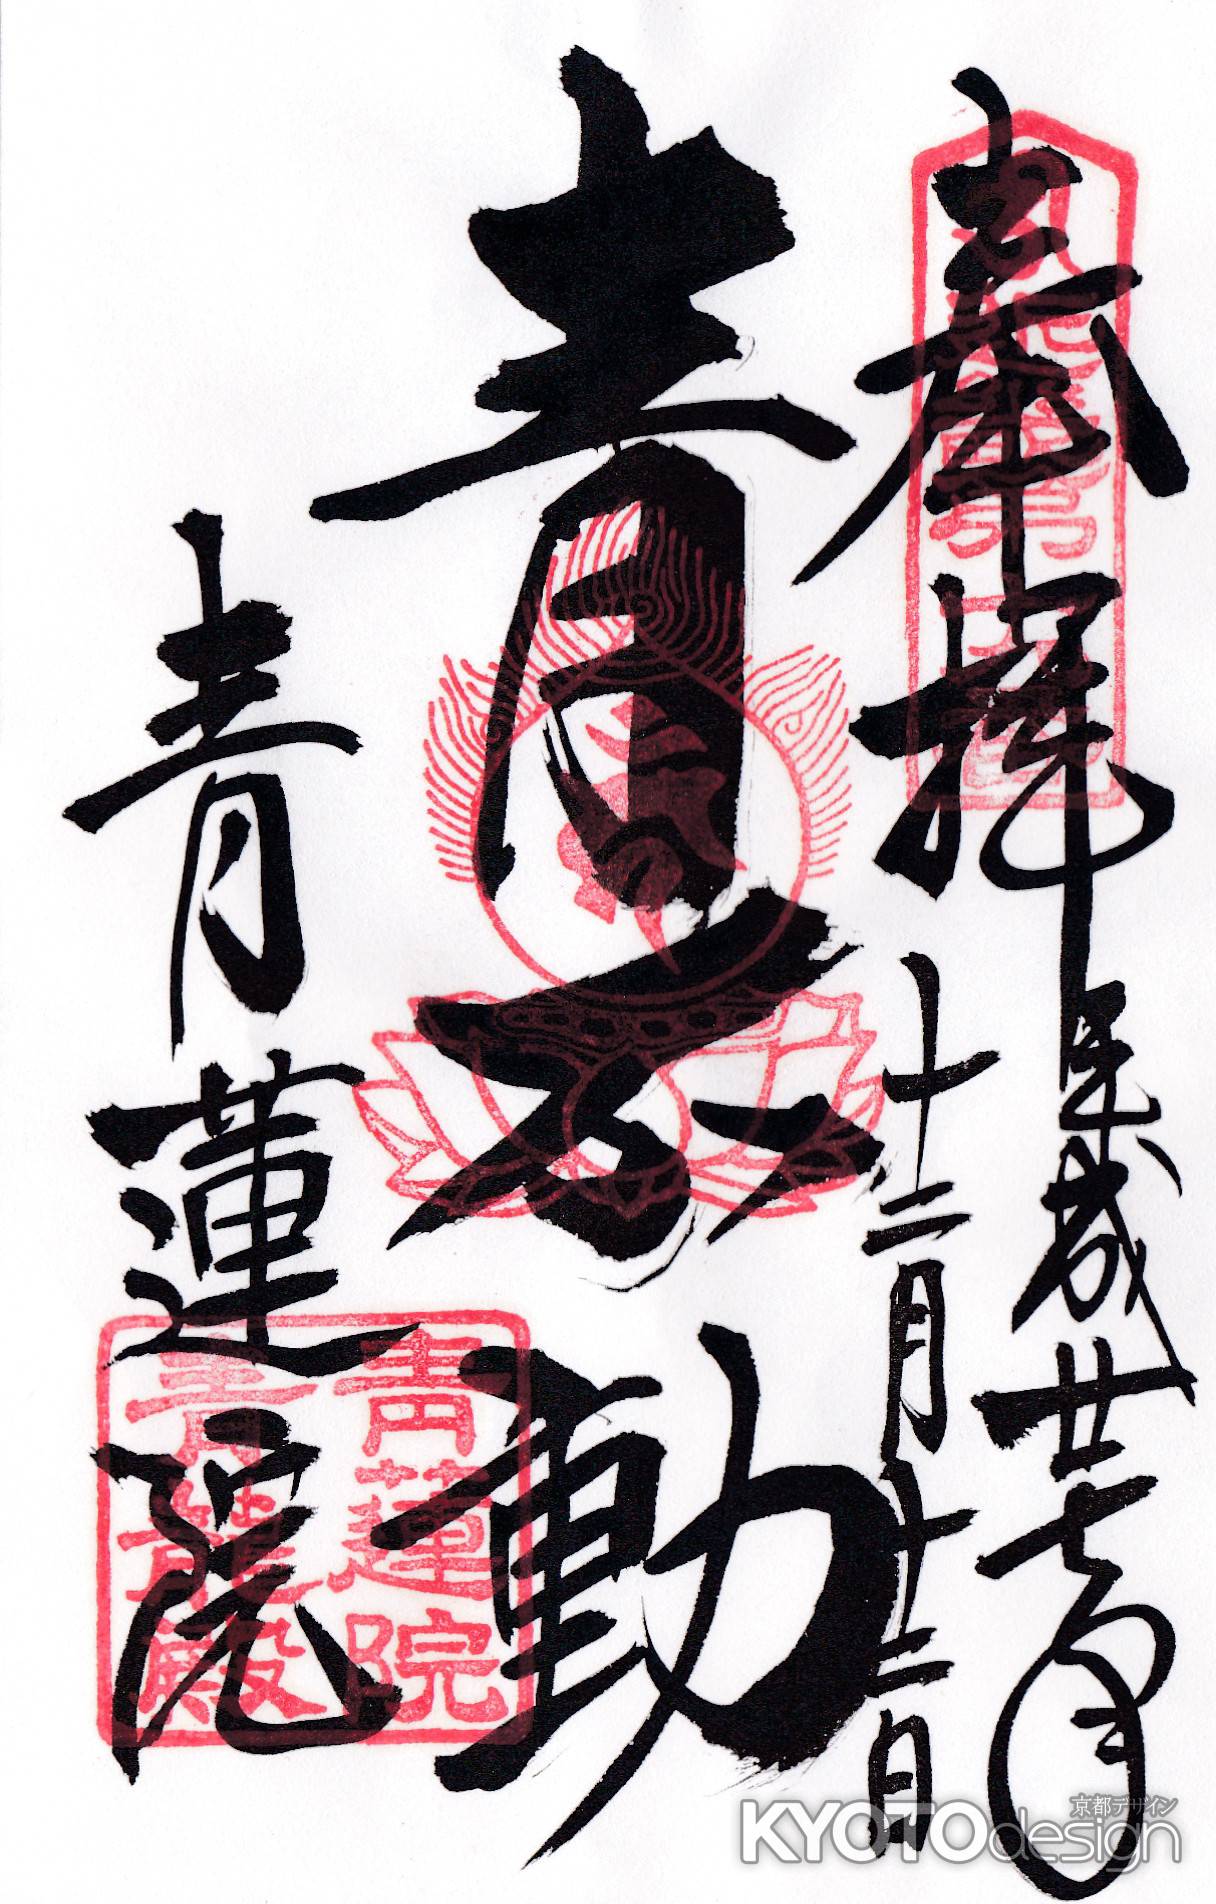 奉拝
平成廿七年
十二月十二日
青不動
青蓮院
青蓮院
青龍殿
京都デザイン
KYOTOdesign